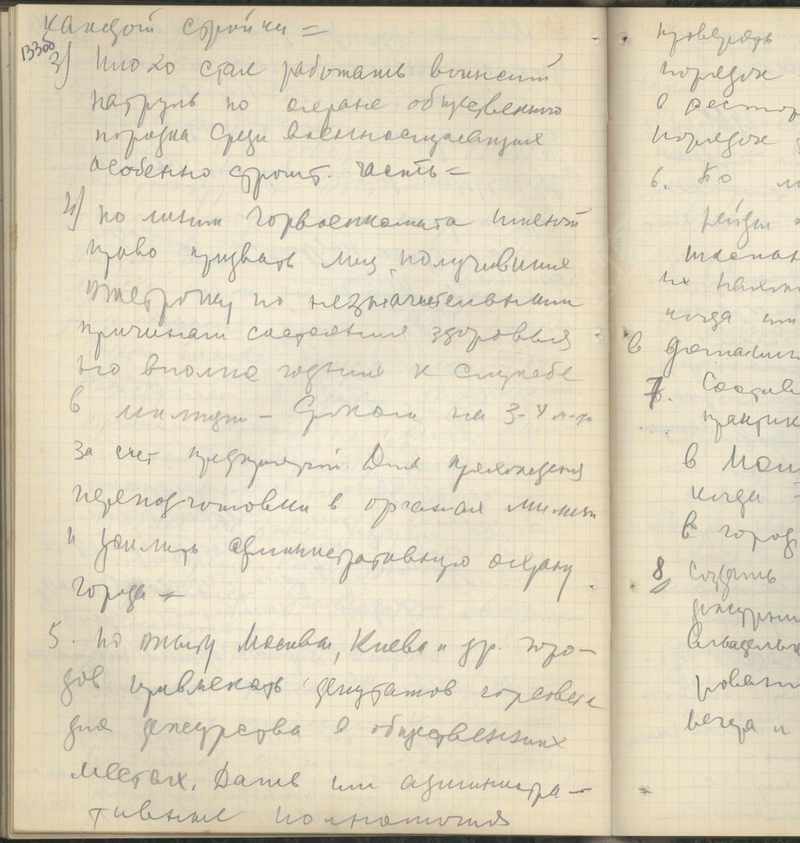 каждой стройки =
1330
3) плохо стал работать воинский
патруль по охране общественного
порядка среди военнослужащих
особенно строит. часть =
4) по линии Горвоенкомата имеют
право призвать лиц, получивших
отстрочку по незначительным
причинам состояния здоровья
но вполне годных к службе
в милиции – Сроком на 3-4 м-ца
за счет предприятий. Для прохождения
переподготовки в органах милиции
и усилить административную охрану
города =
5. по опыту Москвы, Киева и др. горо-
дов привлекать депутатов горсовета
для дежурства в общественных
местах. Дать им администра-
тивные полномочия
проверять
порядок
в рестор
порядок
6. По
рейды
их
когда
в
7. Состав
практик
в
когда
в город
8. Создать
дежурны